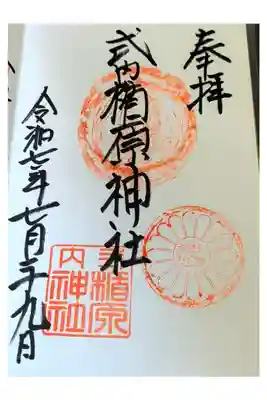 奉拝
式内楯原神社
令和七年七月二十九日
式内
楯原
神社